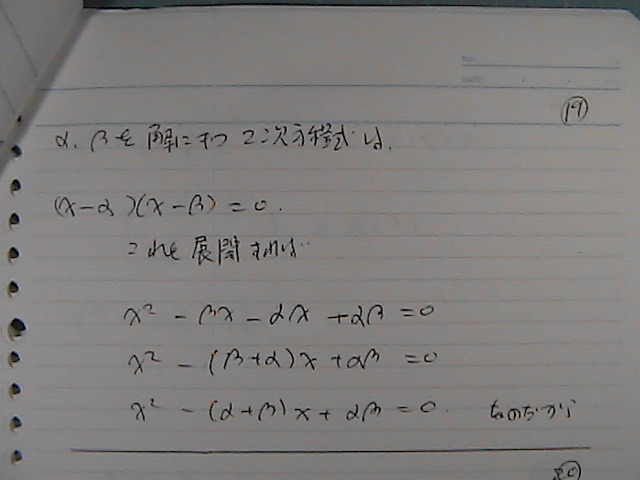 NO.
DATE
⑲
α、βを解にもつ2次方程式は、
(x-α)(x-β)=0.
これを展開すれば…
x² - βx - αx + αβ = 0
x² - (β+α)x + αβ = 0
x² - (α+β)x + αβ = 0. なのだから
⑳